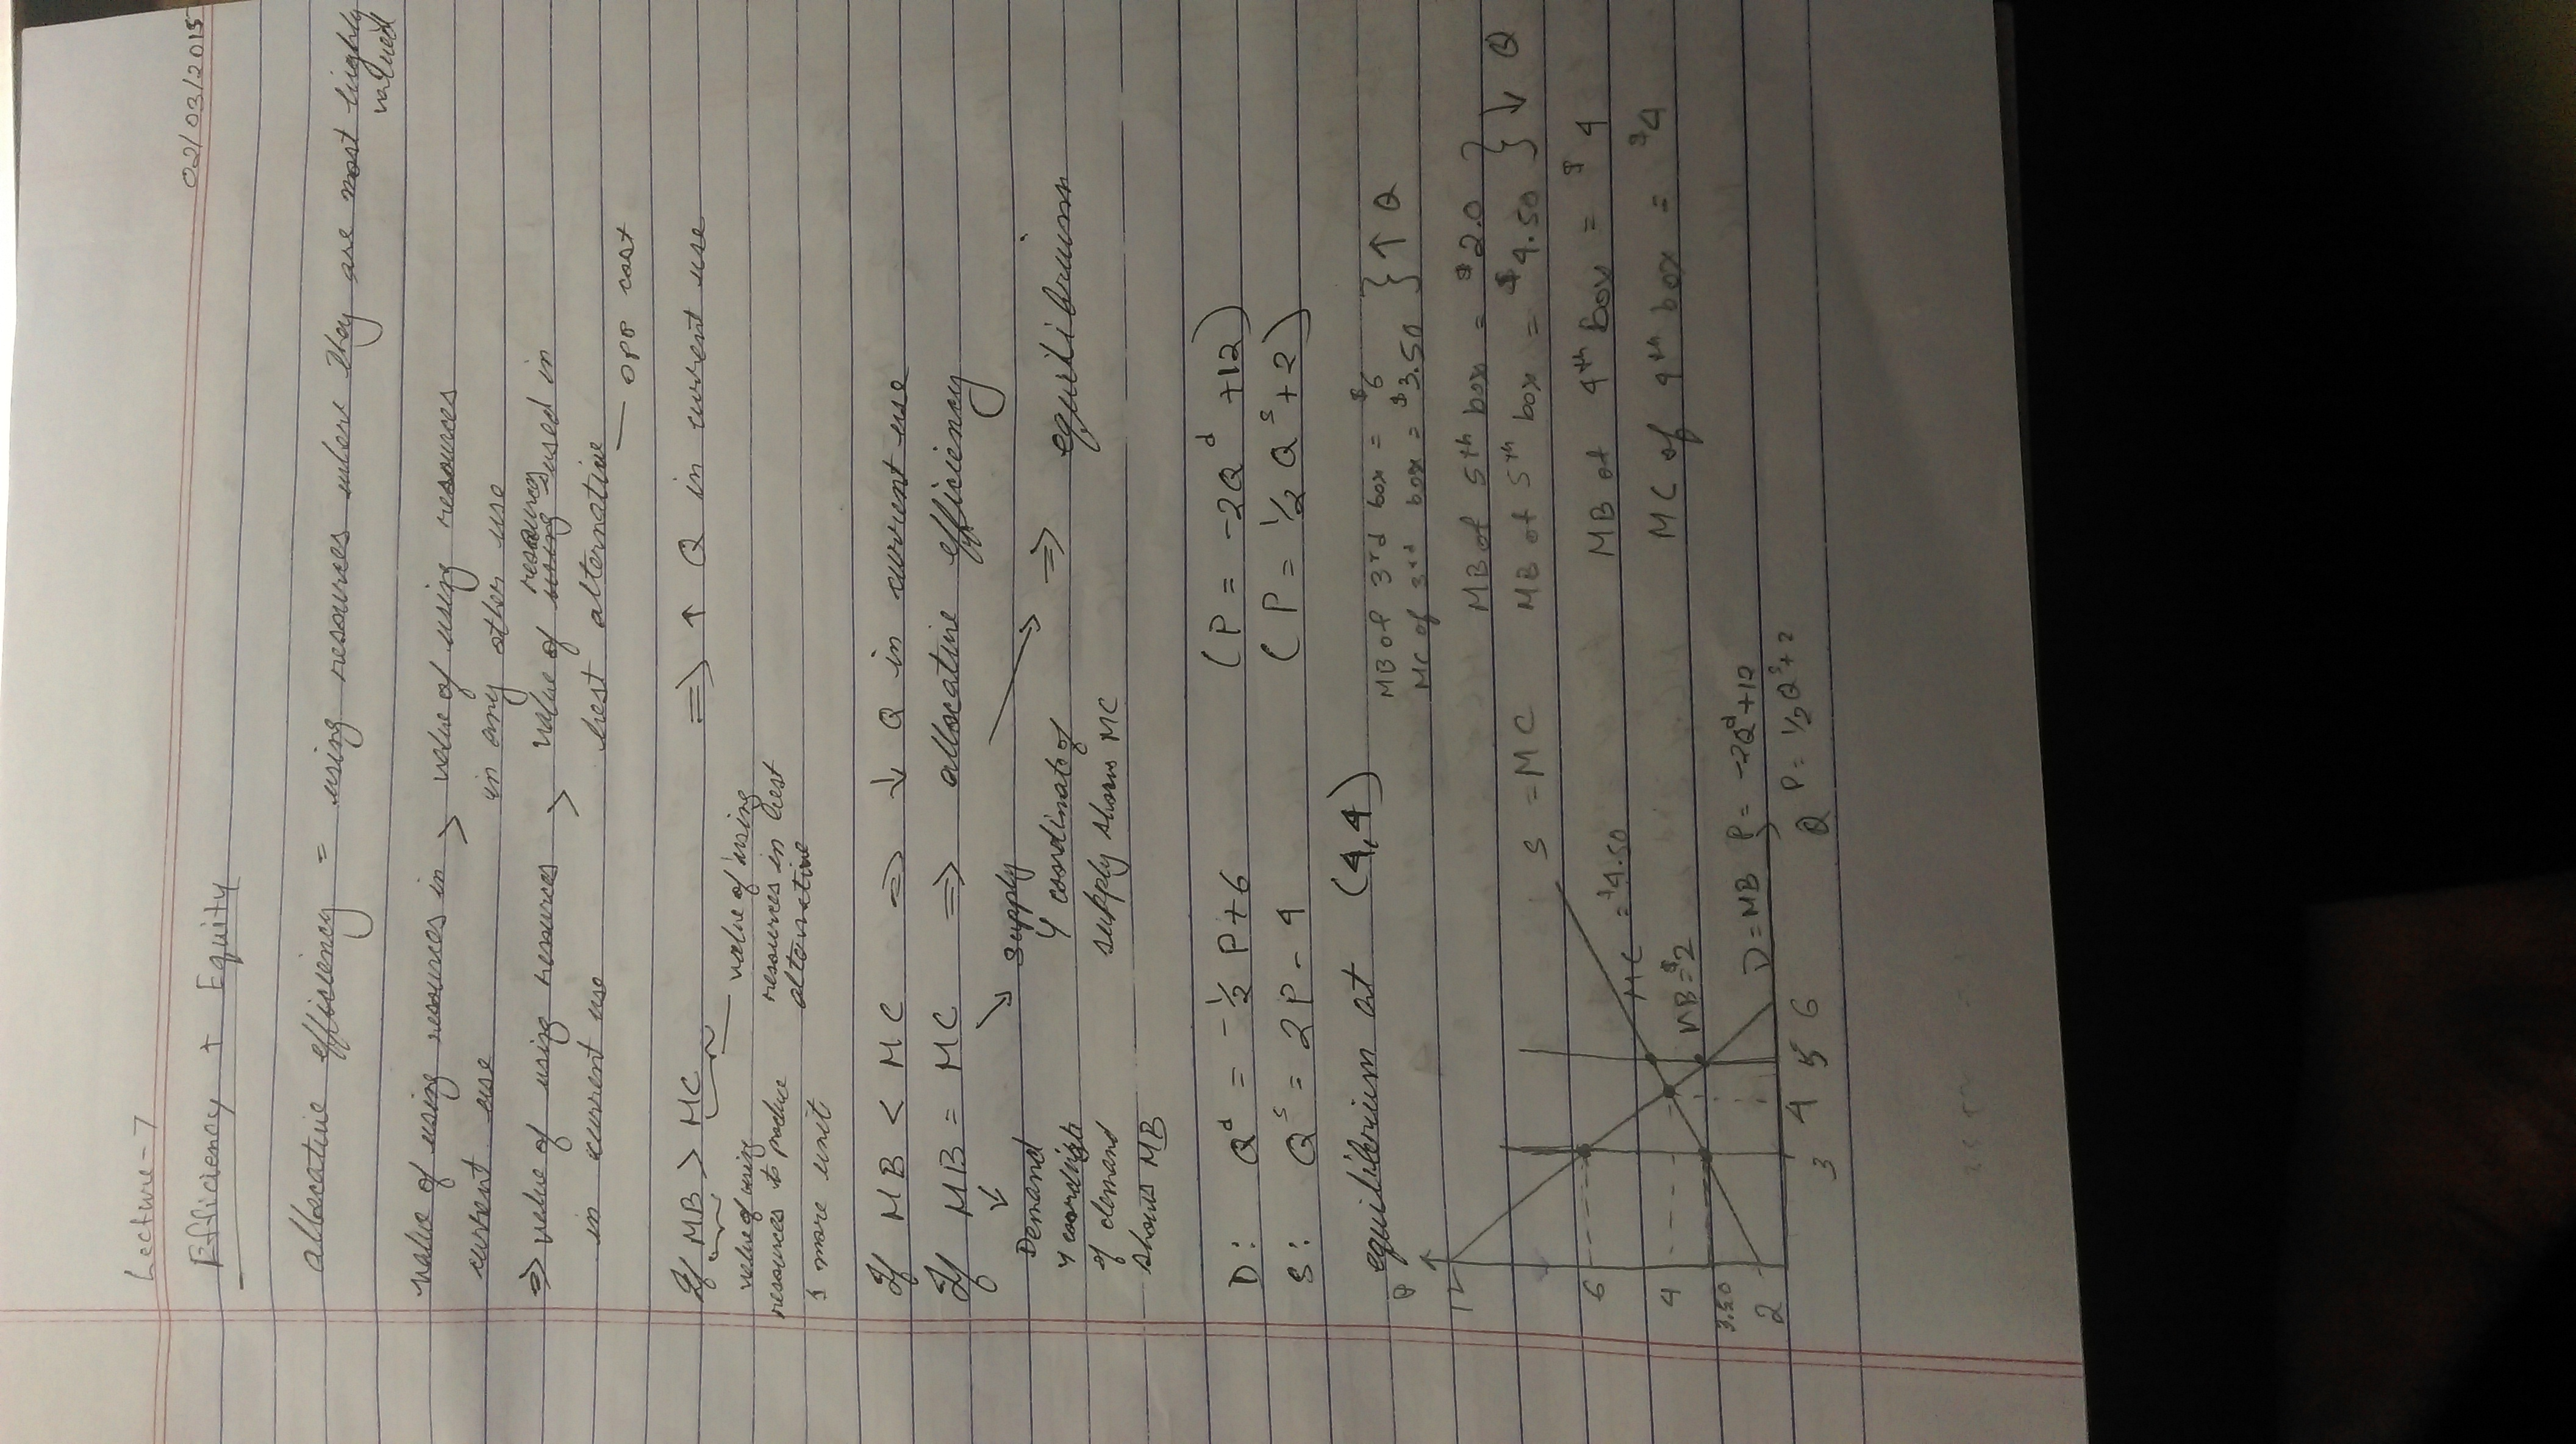 Lecture-7
02/03/2015
Efficiency + Equity
allocative efficiency = using resources where they are most highly valued
value of using resources in > value of using resources
current use in any other use
⇒ value of using resources > value of resources used in
in current use best alternative
— opp cost
If MB > MC ⇒ ↑ Q in current use
value of using resources to produce 1 more unit
value of using resources in best alternative
If MB < MC ⇒ ↓ Q in current use
If MB = MC ⇒ allocative efficiency
Demand
y coordinate of demand shows MB
supply
y coordinate of supply shows MC
⇒ equilibrium
D: Qᵈ = -½ P+6 (P = -2Qᵈ +12)
S: Qˢ = 2P - 4 (P = ½ Qˢ +2)
equilibrium at (4,4)
MB of 3rd box = $6
MC of 3rd box = $3.50 } ↑ Q
MB of 5th box = $2.0
MB of 5th box = $4.50 } ↓ Q
MB of 4th box = $4
MC of 4th box = $4
P
12
6
4
3.50
2
S = MC
MC = $4.50
MB = $2
D = MB P = -2Qᵈ+12
P = ½Qˢ+2
3 4 5 6 Q